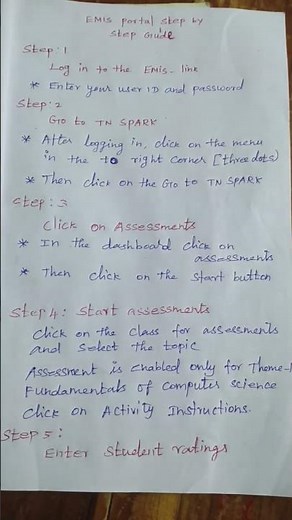 EMIS portal step by
step Guide
Step: 1
Log in to the EMIS - link
* Enter your user ID and password
Step: 2
Go to TN SPARK
* After logging in, click on the menu
in the to right corner [three dots)
* Then click on the Go to TN SPARK
Step: 3
Click on Assessments
* In the dashboard click on
assessments
* Then click on the start button
Step 4: Start assessments
Click on the class for assessments
and select the topic
Assessment is enabled only for Theme-1
Fundamentals of computer science
Click on Activity Instructions.
Step 5:
Enter student ratings